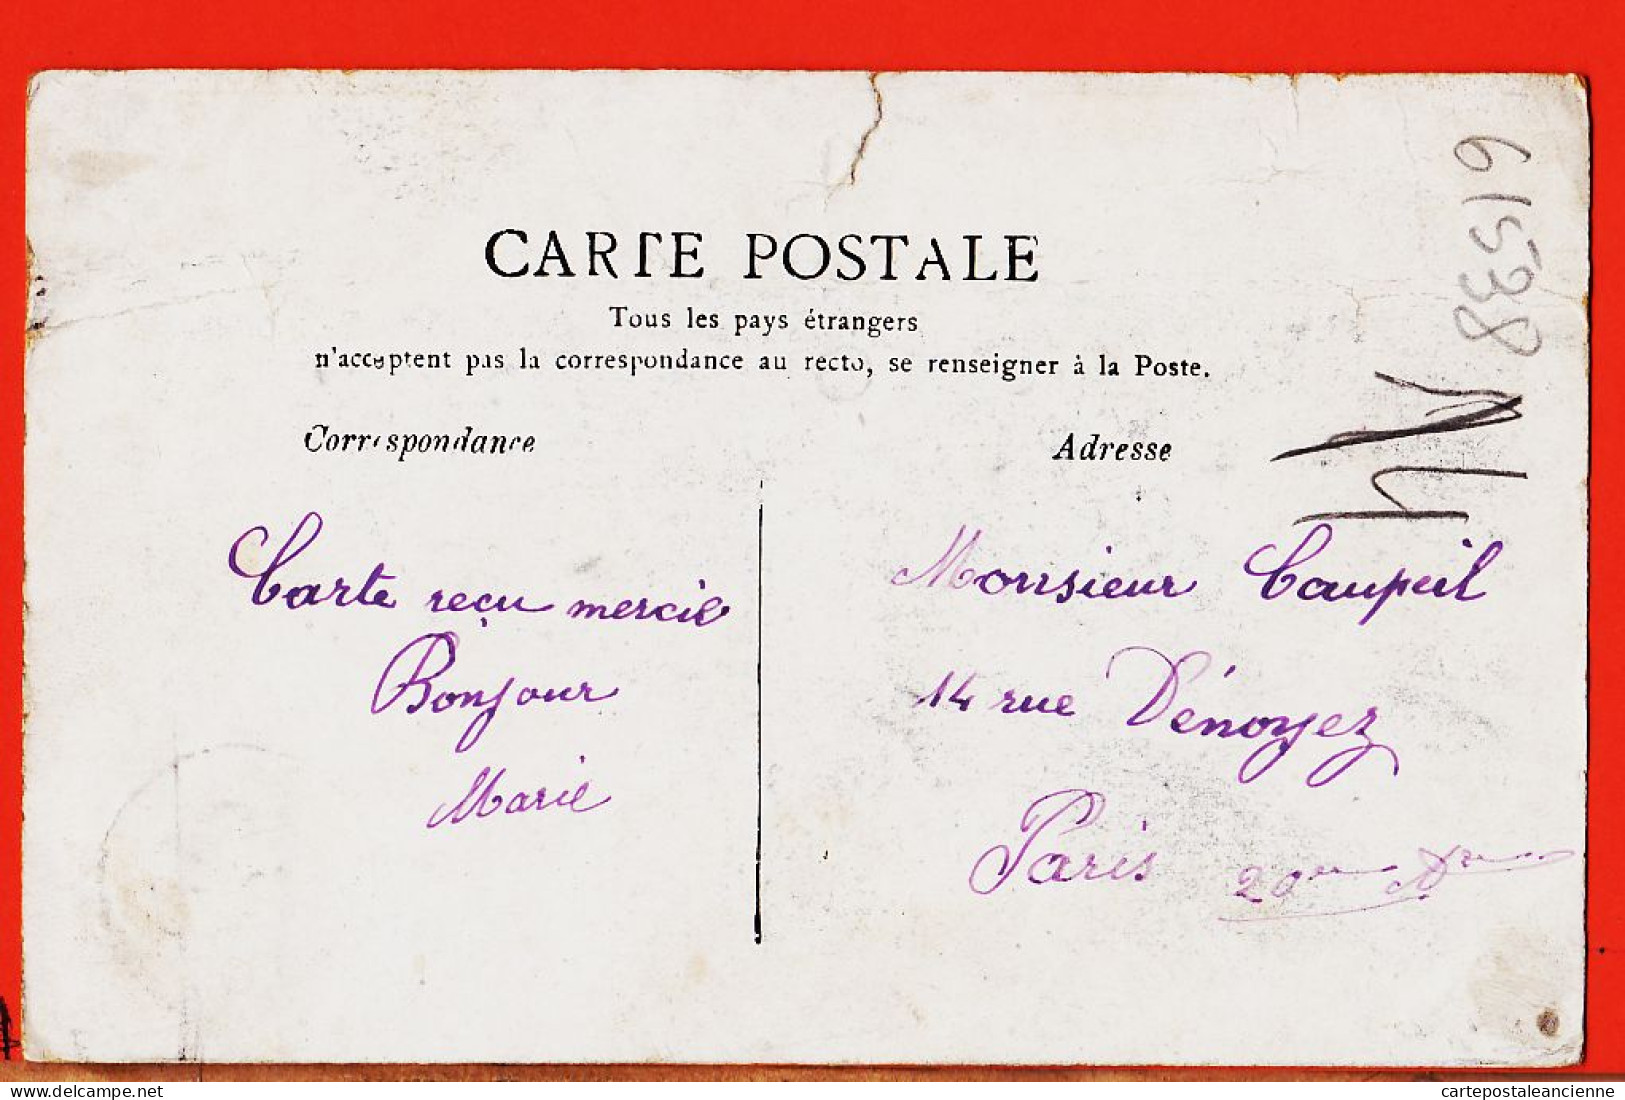 CARTE POSTALE
Tous les pays étrangers
n'acceptent pas la correspondance au recto, se renseigner à la Poste.
Correspondance
Adresse
Carte reçu mercie
Bonjour
Marie
Monsieur Caupeil
14 rue Dénoyez
Paris 20me Ar
61538
delcampe.net
cartepostaleancienne